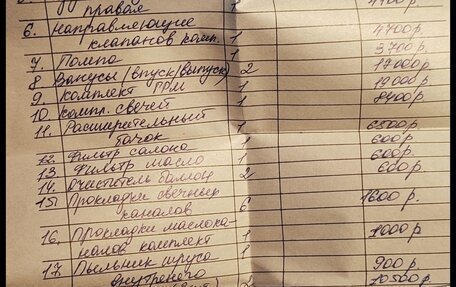 правая 1 4400 р.
6. Направляющие
клапанов комп. 1 4700 р.
7. Помпа 1 3700 р.
8 Ванусы (впуск/выпуск) 2 17000 р.
9. Комплект ГРМ 1 19000 р.
10 Компл. свечей 1 8400 р
11. Расширительный
бачок 1 6500 р.
12. Фильтр салона 1 600 р.
13. Фильтр масло 1 600 р.
14. Очиститель баллон 2 600 р.
15. Прокладки свечных
каналов 6 1600 р.
16. Прокладки маслока-
налов комплект 1 1000 р.
17. Пыльник шруса 1 900 р.
внутренего 2 10500 р.